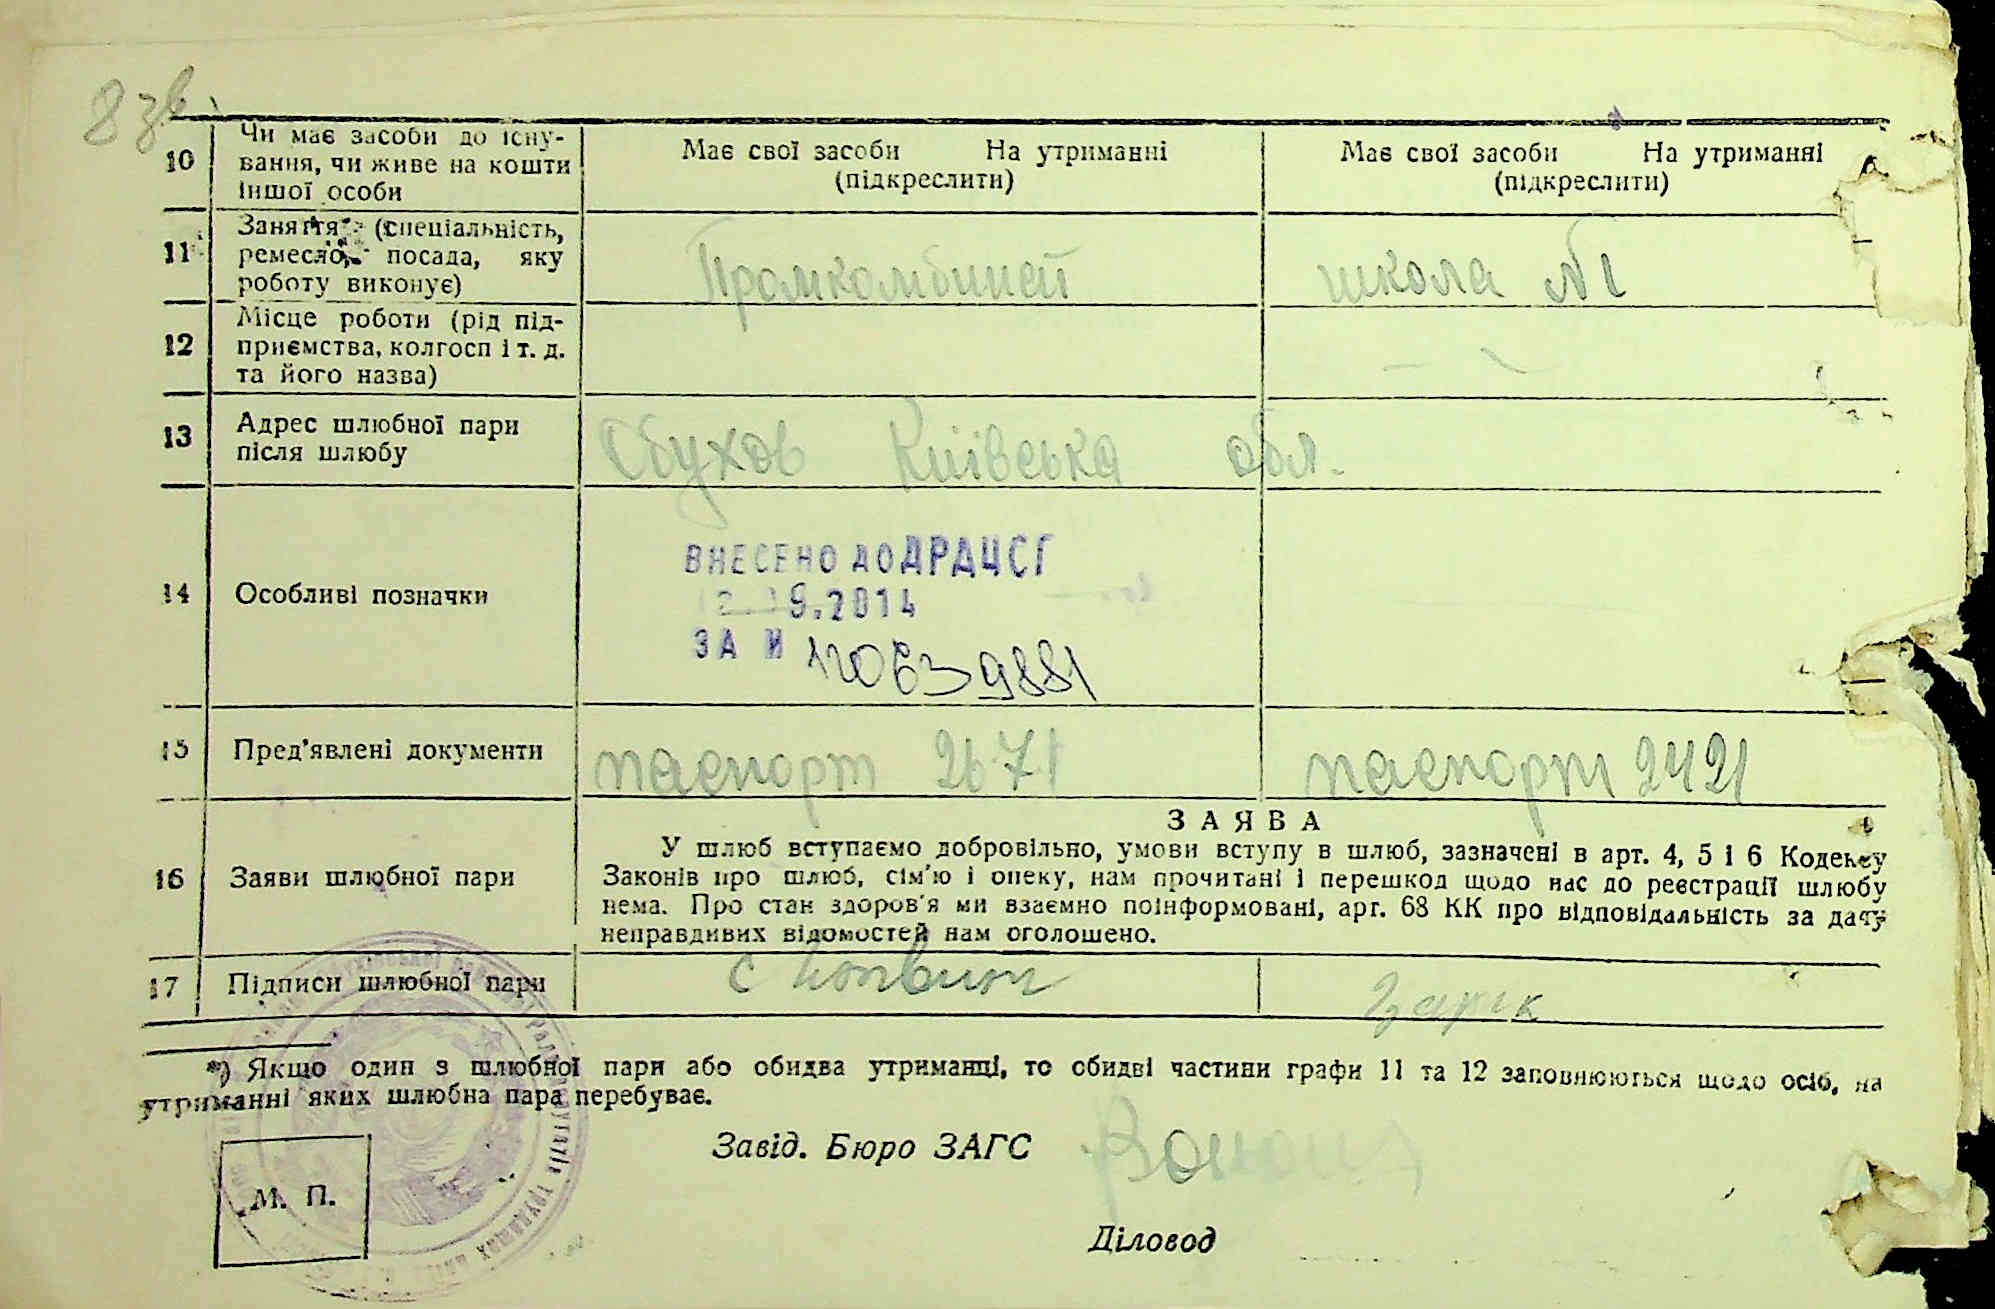 8 зв
10 Чи має засоби до існу-
вання, чи живе на кошти
іншої особи
Має свої засоби На утриманні
(підкреслити)
Має свої засоби На утриманні
(підкреслити)
11 Заняття (спеціальність,
ремесло, посада, яку
роботу виконує)
Промкомбинат
школа №1
12 Місце роботи (рід під-
приємства, колгосп і т. д.
та його назва)
13 Адрес шлюбної пари
після шлюбу
Обухов Київська обл.
14 Особливі позначки
ВНЕСЕНО ДО ДРАЦСГ
9.2014
ЗА №
15 Пред'явлені документи
паспорт 2671
паспорт 2421
16 Заяви шлюбної пари
ЗАЯВА
У шлюб вступаємо добровільно, умови вступу в шлюб, зазначені в арт. 4, 5 і 6 Кодексу
Законів про шлюб, сім'ю і опеку, нам прочитані і перешкод щодо нас до реєстрації шлюбу
нема. Про стан здоров'я ми взаємно поінформовані, арт. 68 КК про відповідальність за дачу
неправдивих відомостей нам оголошено.
17 Підписи шлюбної пари
*) Якщо один з шлюбної пари або обидва утриманці, то обидві частини графи 11 та 12 заповнюються щодо осіб, на
утриманні яких шлюбна пара перебуває.
Завід. Бюро ЗАГС
М. П.
Діловод